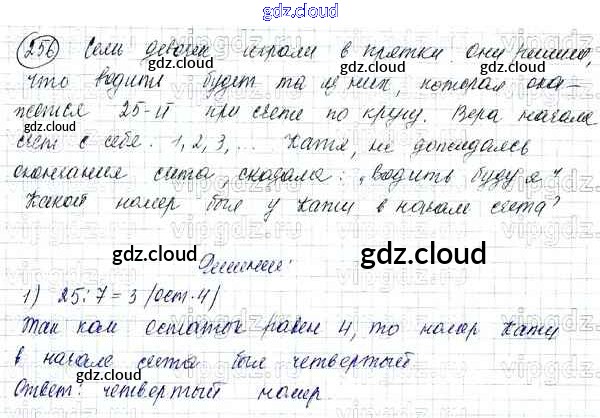 gdz.cloud
256 Семь девочек играли в прятки. Они решили,
что водить будет та из них, которая ока-
жется 25-й при счете по кругу. Вера начала
счет с себя. 1, 2, 3, ... Катя, не дожидаясь
окончания счета, сказала: „Водить буду я".
Какой номер был у Кати в начале счета?
Решение:
1) 25:7=3 (ост.4)
Так как остаток равен 4, то номер Кати
в начале счета был четвертый.
Ответ: четвертый номер.